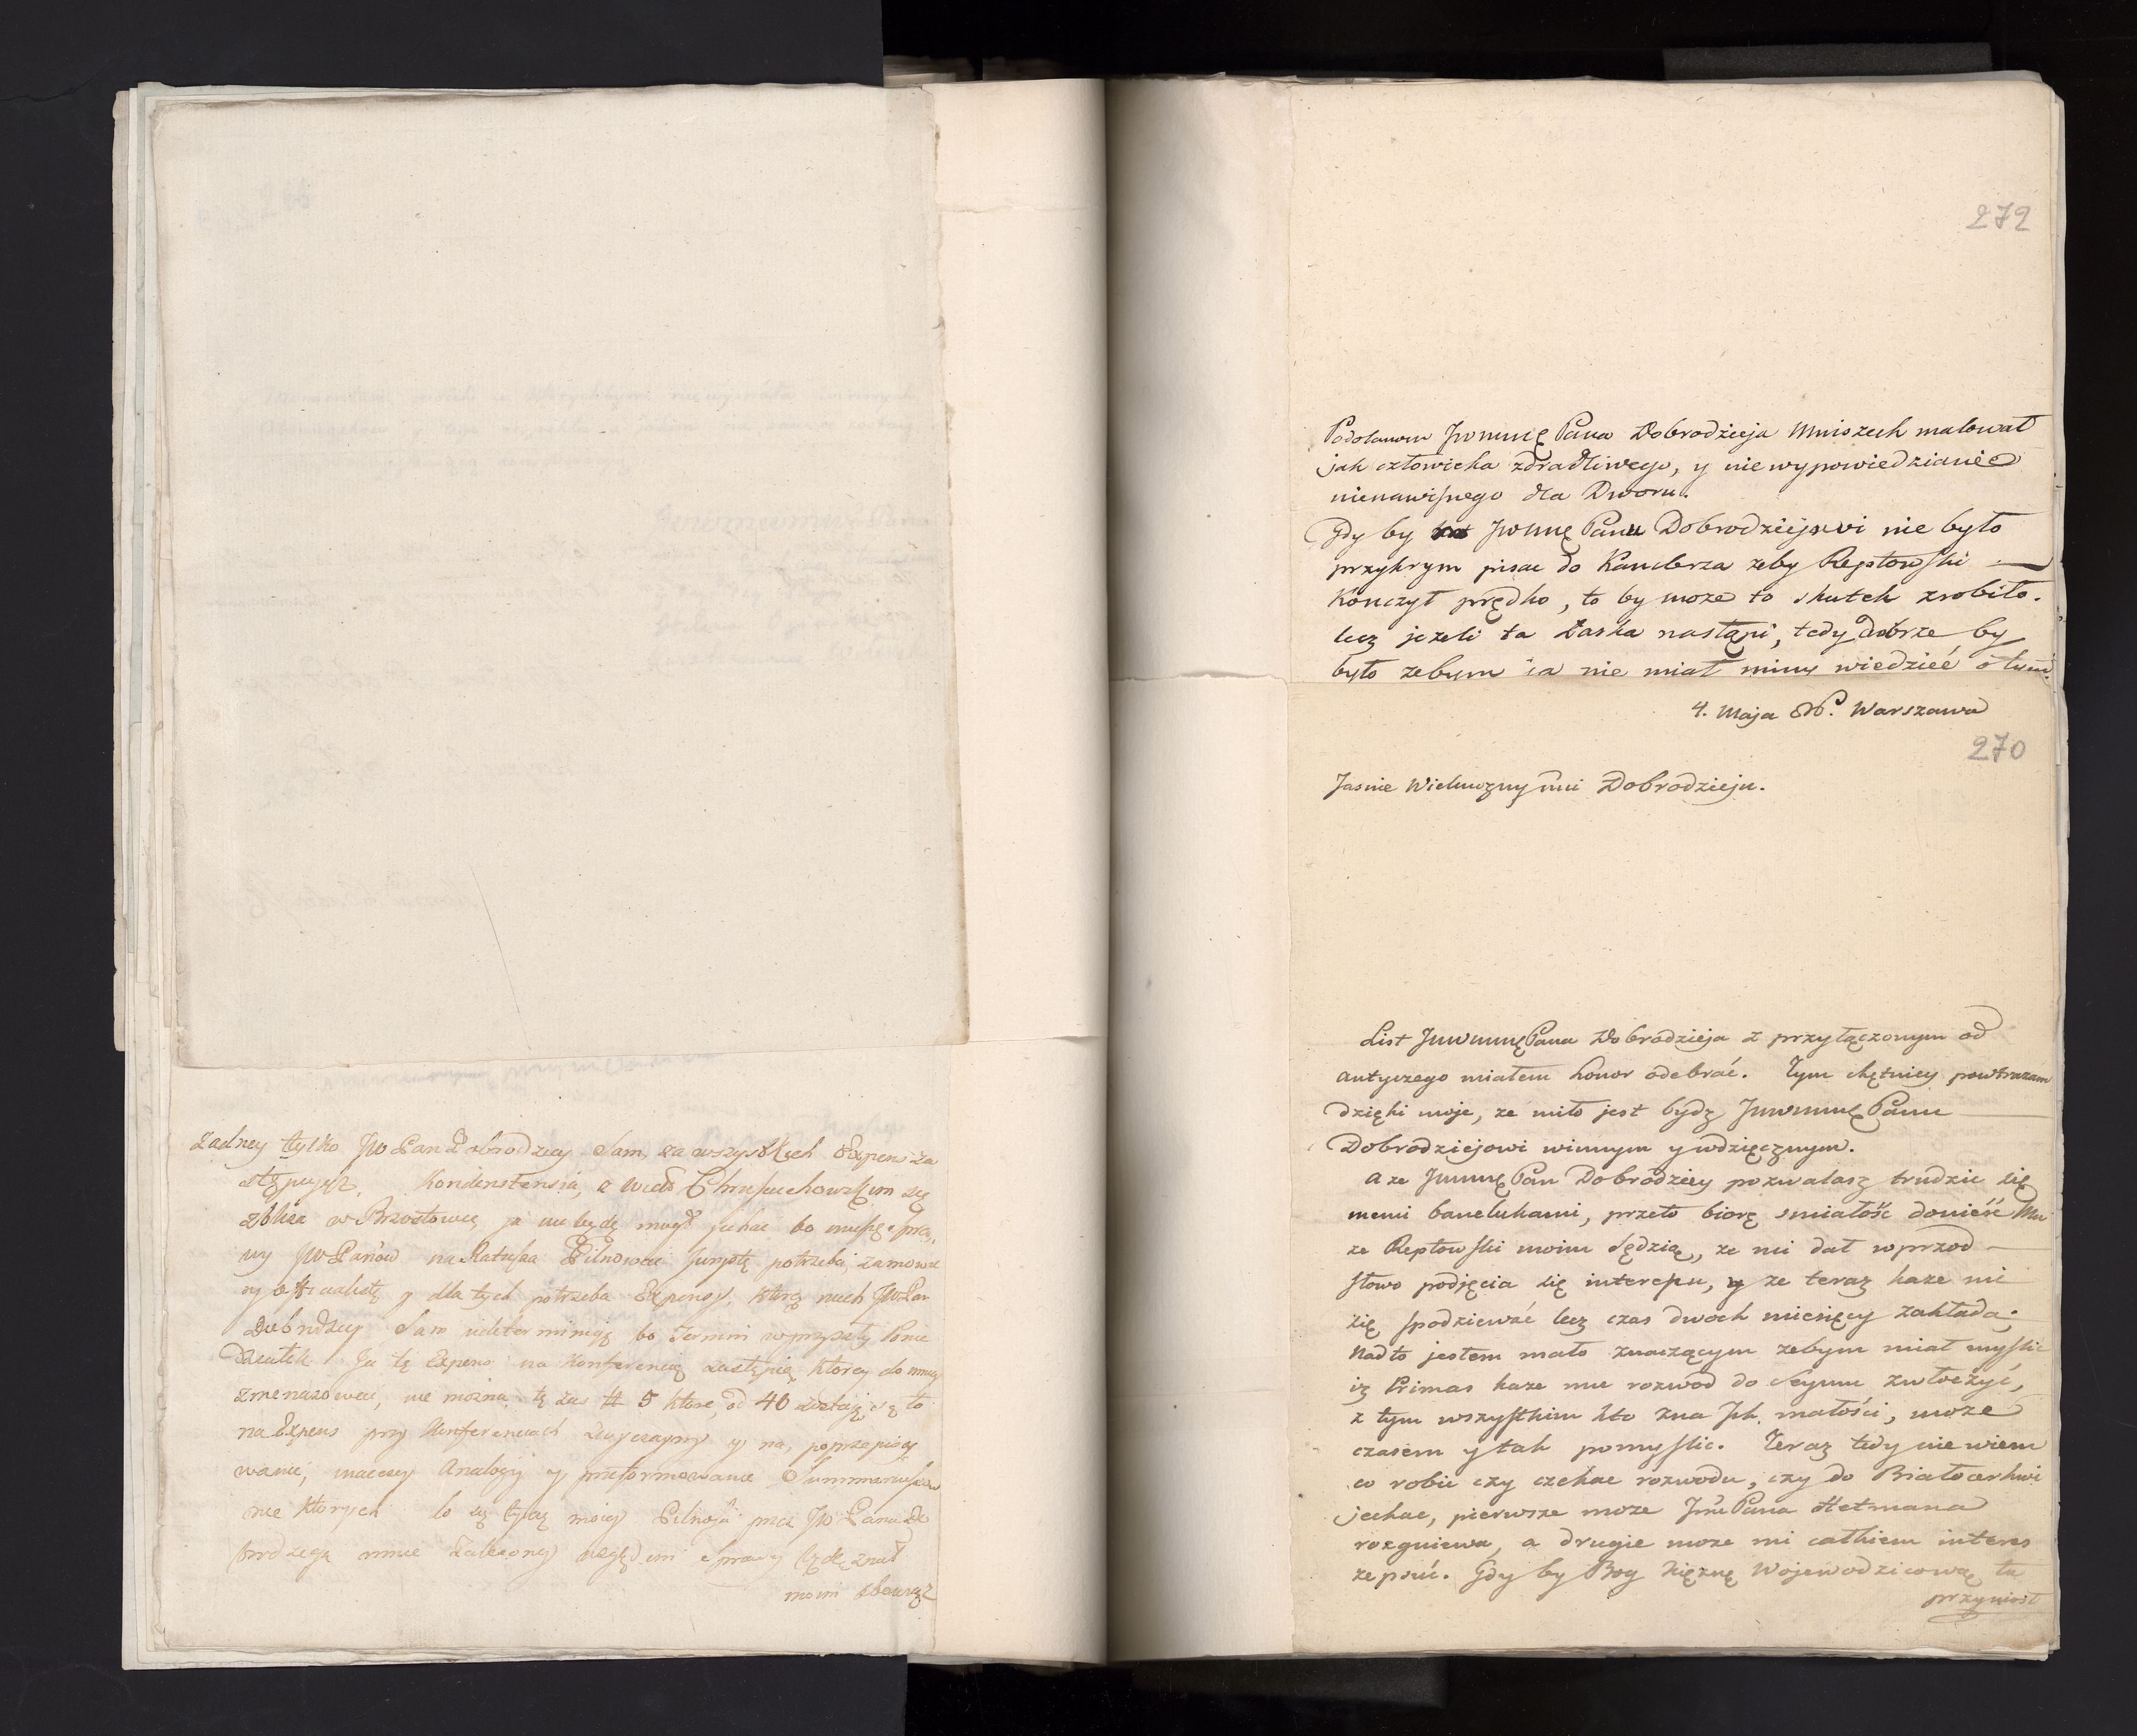 żadney tylko JW Pan Dobrodziey Sam, za wszystkich Expens za
stępujesz. Kondenstensia, z
zbliża w Brzostowie ja nie będę mogł jechac bo muszę Spra,
wy JW Panow na Ratusza Pilnowac Jurystę potrzeba, zamowic
y dla tych potrzeba Expensy, ktorą niech JW Pan
Dobrodziey Sam udeterminuje bo Termin wyprzysty Ponie
działek Ja tę Expens na Konferencią zastępię, ktorey do mnie
nie można tę zas # 5 ktore, od 40 to
na Expens przy Konferencach zwyczayny y na, poprzepisy
wanie, inaczey Analogij y przeformowanie
nie ktorych Co się tycze moiey Pilnosci prze JW Pana Do
brodzieja mnie zaleconey względem Sprawy będę znał
moim obowiąz
272
Podobnom Jwmę Pana Dobrodzieja Mniszech malował
jak człowieka zdradliwego, y niewypowiedzianie
nienawisnego dla Dworu.
Gdy by Jwmę Panu Dobrodziejowi nie było
przykrym pisac do Kanclerza zeby Reptowski
konczył prędko, to by moze to skutek zrobiło.
lecz jezeli ta Łaska nastąpi, tedy dobrze by
było zebym ia nie miał miny wiedzieć o tym.
4. Maja Warszawa
270
Jasnie Wielmozny mi Dobrodzieju.
List Jwwmę Pana Dobrodzieja z przyłączonym od
Antyczego miałem honor odebrać. Tym chętniey powtarzam
dzięki moje, ze miło jest bydz Jwwmę Panu
Dobrodziejowi winnym y wdzięcznym.
A ze Jwmę Pan Dobrodziey pozwalasz trudzic się
memi banelukami, przeto biorę smiałość donieść Mu
ze Reptowski moim Sędzią, ze mi dał wprzod
słowo podjęcia się interessu, y ze teraz kaze mi
się spodziewać lecz czas dwoch miesięcy zakłada;
Nadto jestem mało znaczącym zebym miał myslic
iz Primas kaze mu rozwod do Seymu zwłoczyć,
z tym wszystkim kto zna Jch. małości, moze
czasem y tak pomyslic. Teraz tedy nie wiem
co robic czy czekac rozwodu, czy do Białocerkwi
jechac, pierwsze moze Jmę Pana Hetmana
rozgniewa, a drugie moze mi całkiem interes
zepsuć. Gdy by Bog Xiężnę Wojewodzicową tu
przyniosł